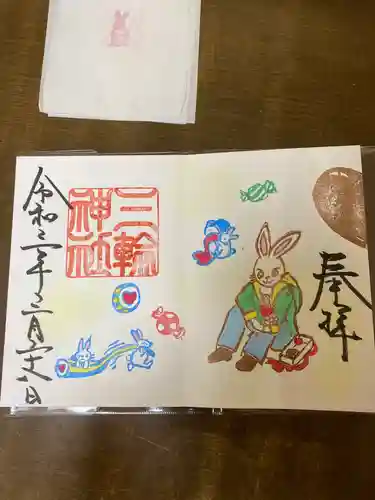 奉拝
三輪
神社
令和三年二月二十八日